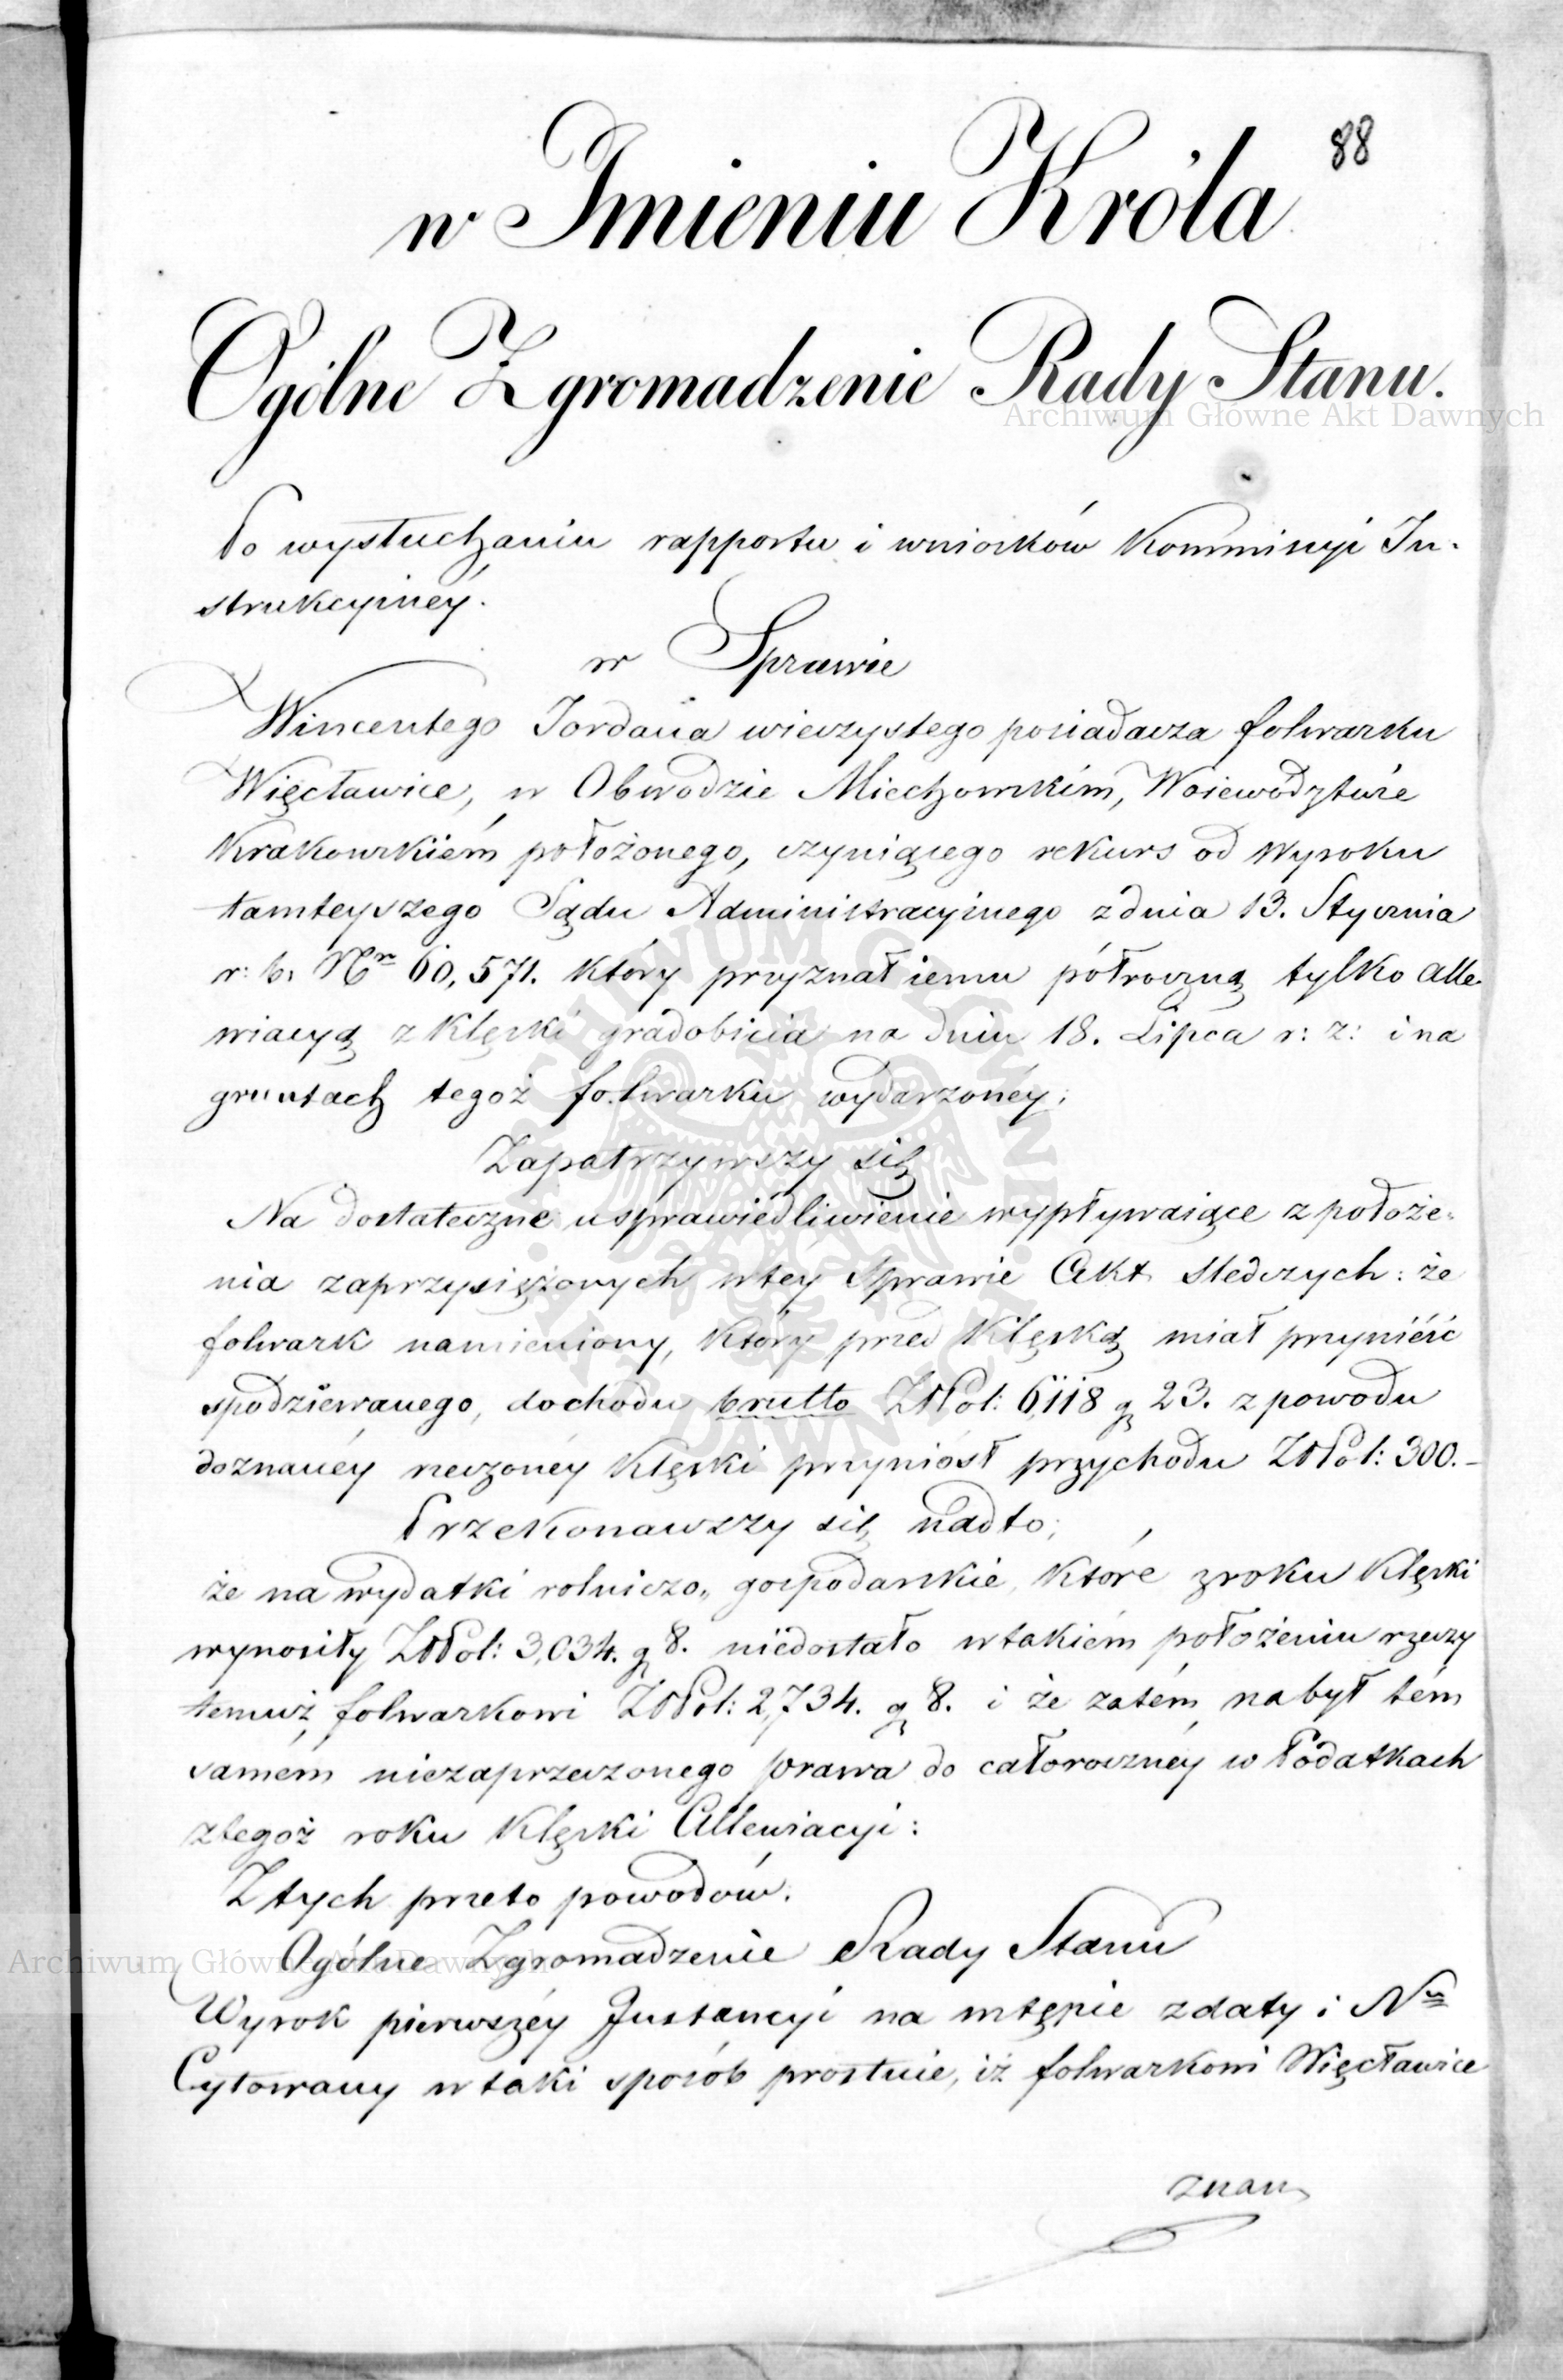 88
w Imieniu Króla
Ogólne Zgromadzenie Rady Stanu.
Po wysłuchaniu rapportu i wniosków Kommissyi In-
strukcyinéy.
w Sprawie
Wincentego Jordana wieczystego posiadacza folwarku
Więcławice, w Obwodzie Miechowskim, Woiewództwie
Krakowskiém położonego, czyniącego rekurs od Wyroku
tamteyszego Sądu Administracyinego z dnia 13. Stycznia
r: b. Nr 60,571. który przyznał iemu półroczną tylko alle-
wiacyą z klęski gradobicia na dniu 18. Lipca r: z: i na
gruntach tegoż folwarku wydarzonéy;
Zapatrzywszy się
Na dostateczne usprawiedliwienie wypływaiące z położe-
nia zaprzysiężonych w téy Sprawie Akt śledczych: że
folwark namieniony, który przed klęską miał przynieść
spodziewanego, dochodu brutto ZłPol: 6,118 g 23. z powodu
doznanéy rzeczonéy klęski przyniósł przychodu ZłPol: 300.-
Przekonawszy się nadto;
że na wydatki rolniczo„ gospodarskie, które z roku klęski
wynosiły ZłPol: 3,034. g 8. niedostało w takiém położeniu rzeczy
temuż folwarkowi ZłPol: 2,734. g 8. i że zatém nabył tém
samém niezaprzeczonego prawa do całorocznéy w Podatkach
z tegoż roku klęski Allewiacyi:
Z tych przeto powodów.
Ogólne Zgromadzenie Rady Stanu
Wyrok pierwszéy Instancyi na wstępie z daty i Nru
Cytowany w taki sposób prostuie, iż folwarkowi Więcławice
Archiwum Główne Akt Dawnych
Archiwum Główne Akt Dawnych
ARCHIWUM GŁÓWNE AKT DAWNYCH